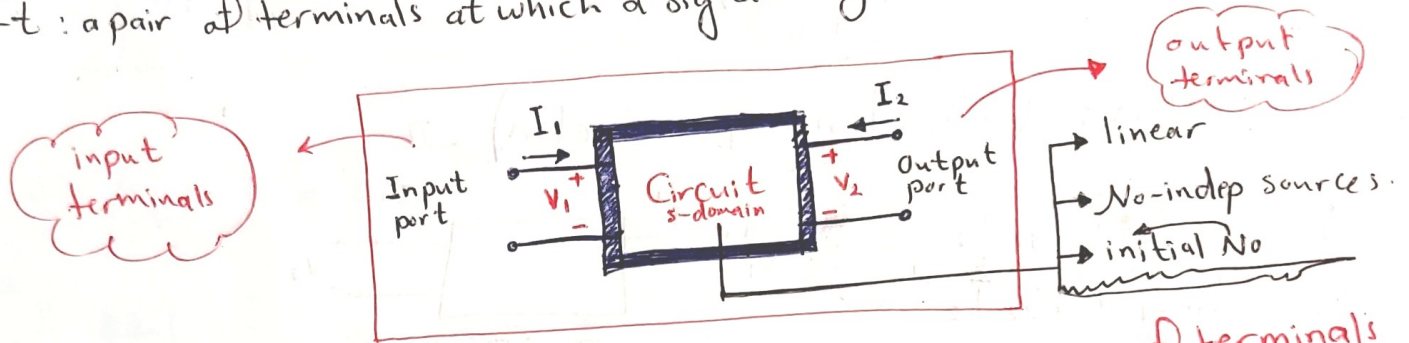 -t : a pair of terminals at which a sig
output
terminals
I₁
I₂
linear
input
terminals
Input
port
V₁
+
-
Circuit
s-domain
+
V₂
-
Output
port
No-indep sources.
initial No
terminals